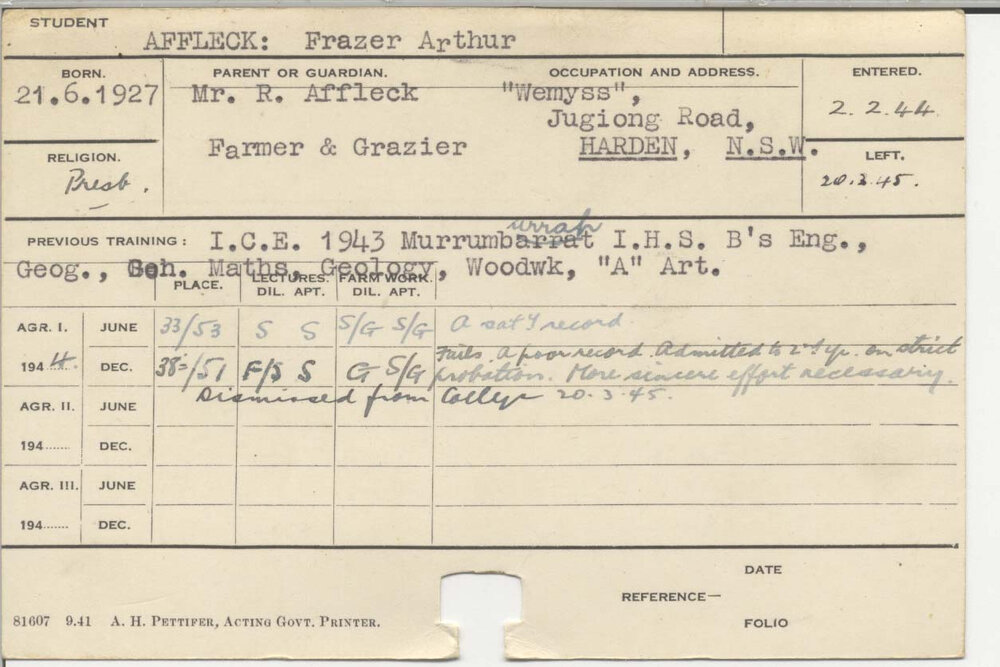 STUDENT
AFFLECK: Frazer Arthur
BORN. PARENT OR GUARDIAN. OCCUPATION AND ADDRESS. ENTERED.
21.6.1927 Mr. R. Affleck "Wemyss", 2.2.44
Jugiong Road,
Farmer & Grazier HARDEN, N.S.W.
RELIGION. LEFT.
Presb. 20.3.45.
urrah
PREVIOUS TRAINING: I.C.E. 1943 Murrumbarrat I.H.S. B's Eng.,
Geog., Gen. Maths, Geology, Woodwk, "A" Art.
PLACE. LECTURES. FARM WORK.
DIL. APT. DIL. APT.
AGR. I. JUNE 33/53 S S S/G S/G A sat y record.
1944. DEC. 38=/51 F/S S G S/G Fails. A poor record. Admitted to 2nd yr. on strict
probation. More sincere effort necessary.
Dismissed from College 20.3.45.
AGR. II. JUNE
194...... DEC.
AGR. III. JUNE
194...... DEC.
DATE
REFERENCE—
FOLIO
81607 9.41 A. H. PETTIFER, ACTING GOVT. PRINTER.